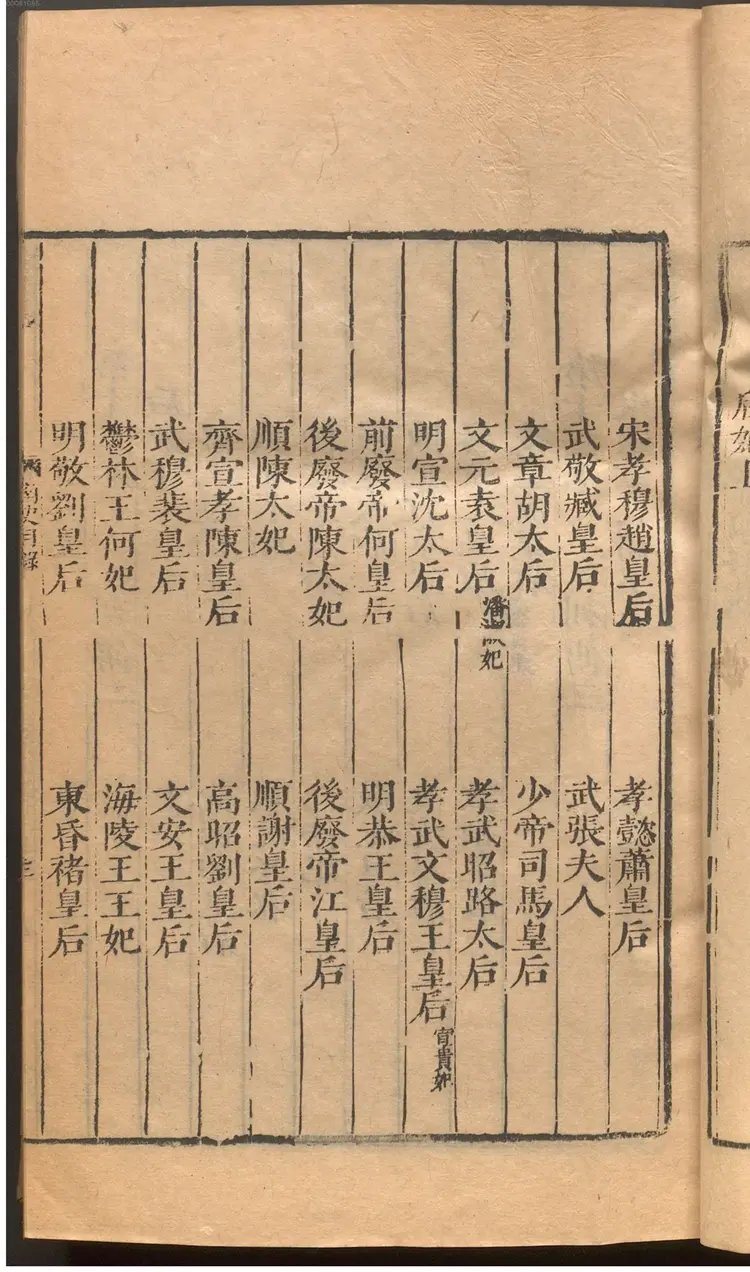 后妃
宋孝穆趙皇后　孝懿蕭皇后
武敬臧皇后　武張夫人
文章胡太后　少帝司馬皇后
文元袁皇后潘淑妃　孝武昭路太后
明宣沈太后　孝武文穆王皇后宣貴妃
前廢帝何皇后　明恭王皇后
後廢帝陳太妃　後廢帝江皇后
順陳太妃　順謝皇后
齊宣孝陳皇后　高昭劉皇后
武穆裴皇后　文安王皇后
鬱林王何妃　海陵王王妃
明敬劉皇后　東昏褚皇后
南史目錄　三